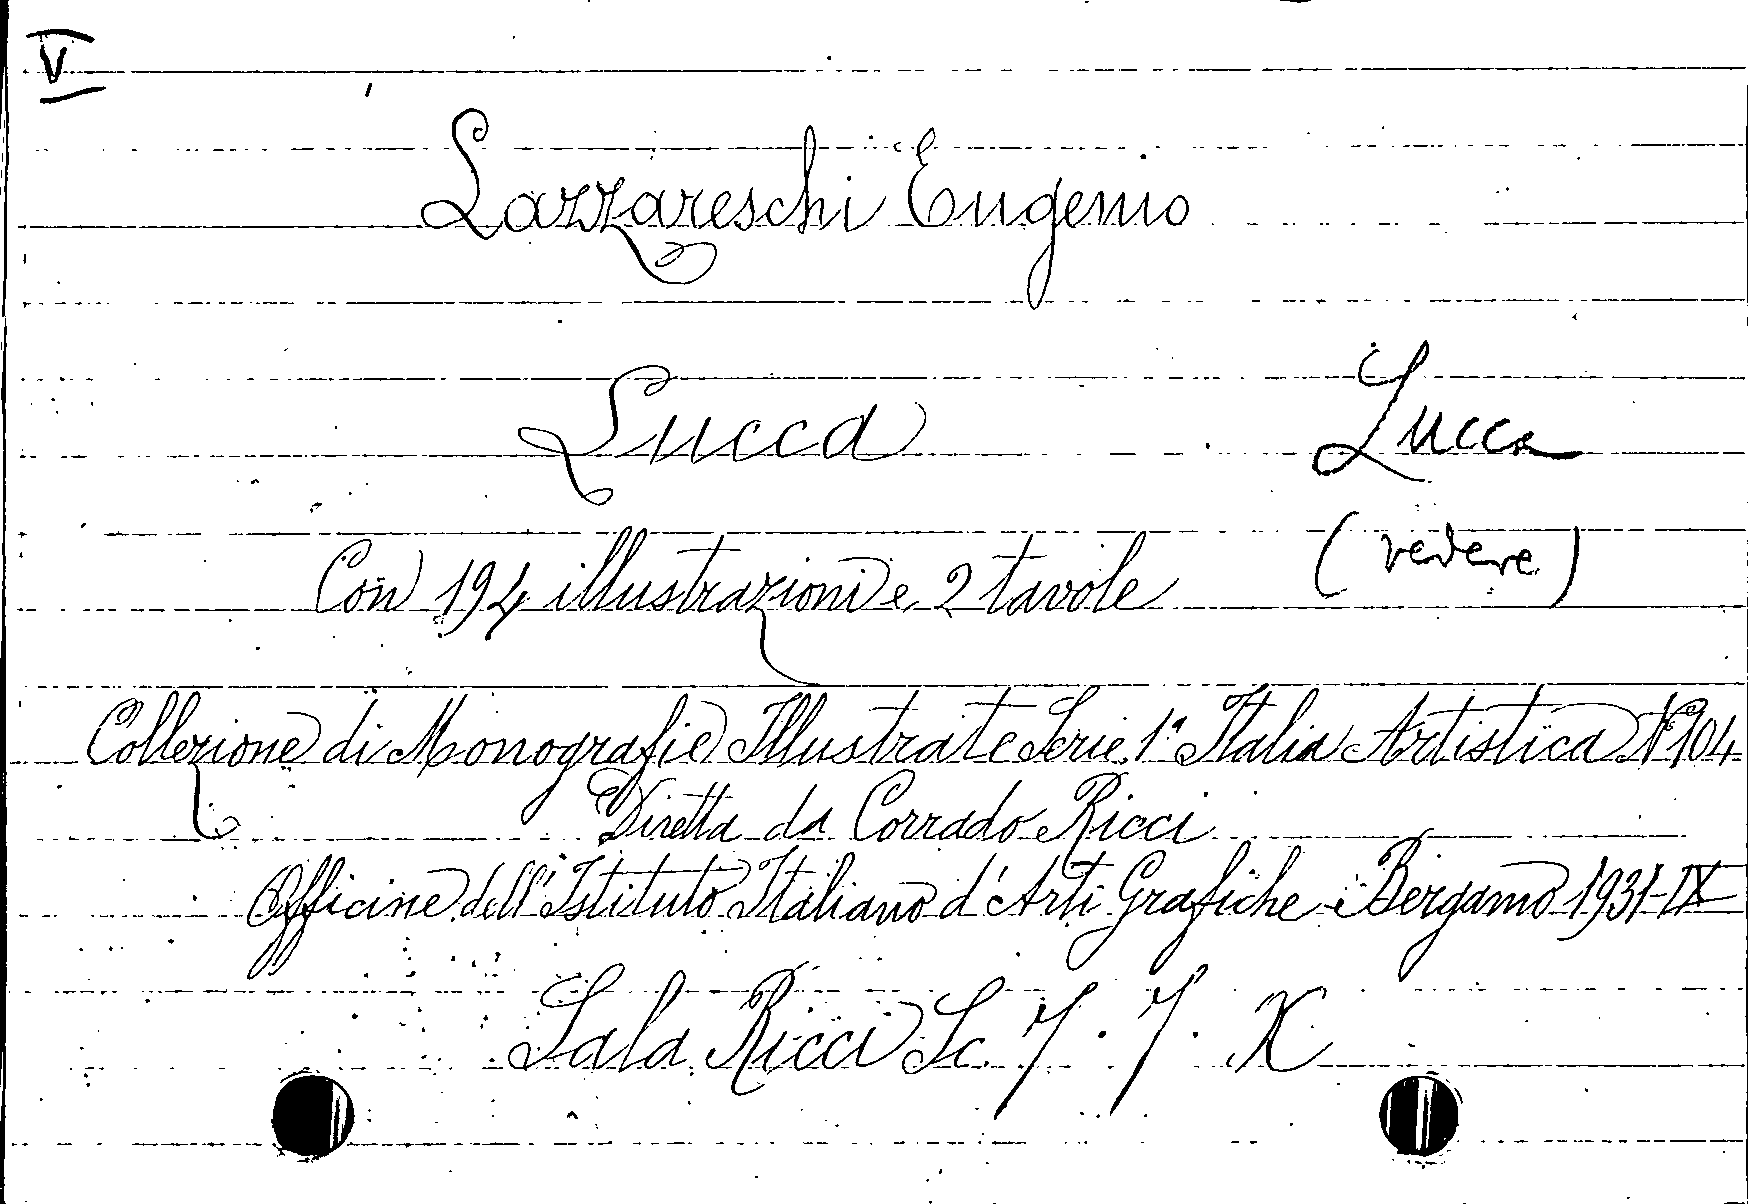 V
Lazzareschi Eugenio
Lucca
Lucca
(vedere)
Con 194 illustrazioni e 2 tavole
Collezione di Monografie Illustrate Serie 1ª Italia Artistica N° 104
Diretta da Corrado Ricci
Officine dell'Istituto Italiano d'Arti Grafiche Bergamo 1931-IX
Sala Ricci Sc. 7. 7. X